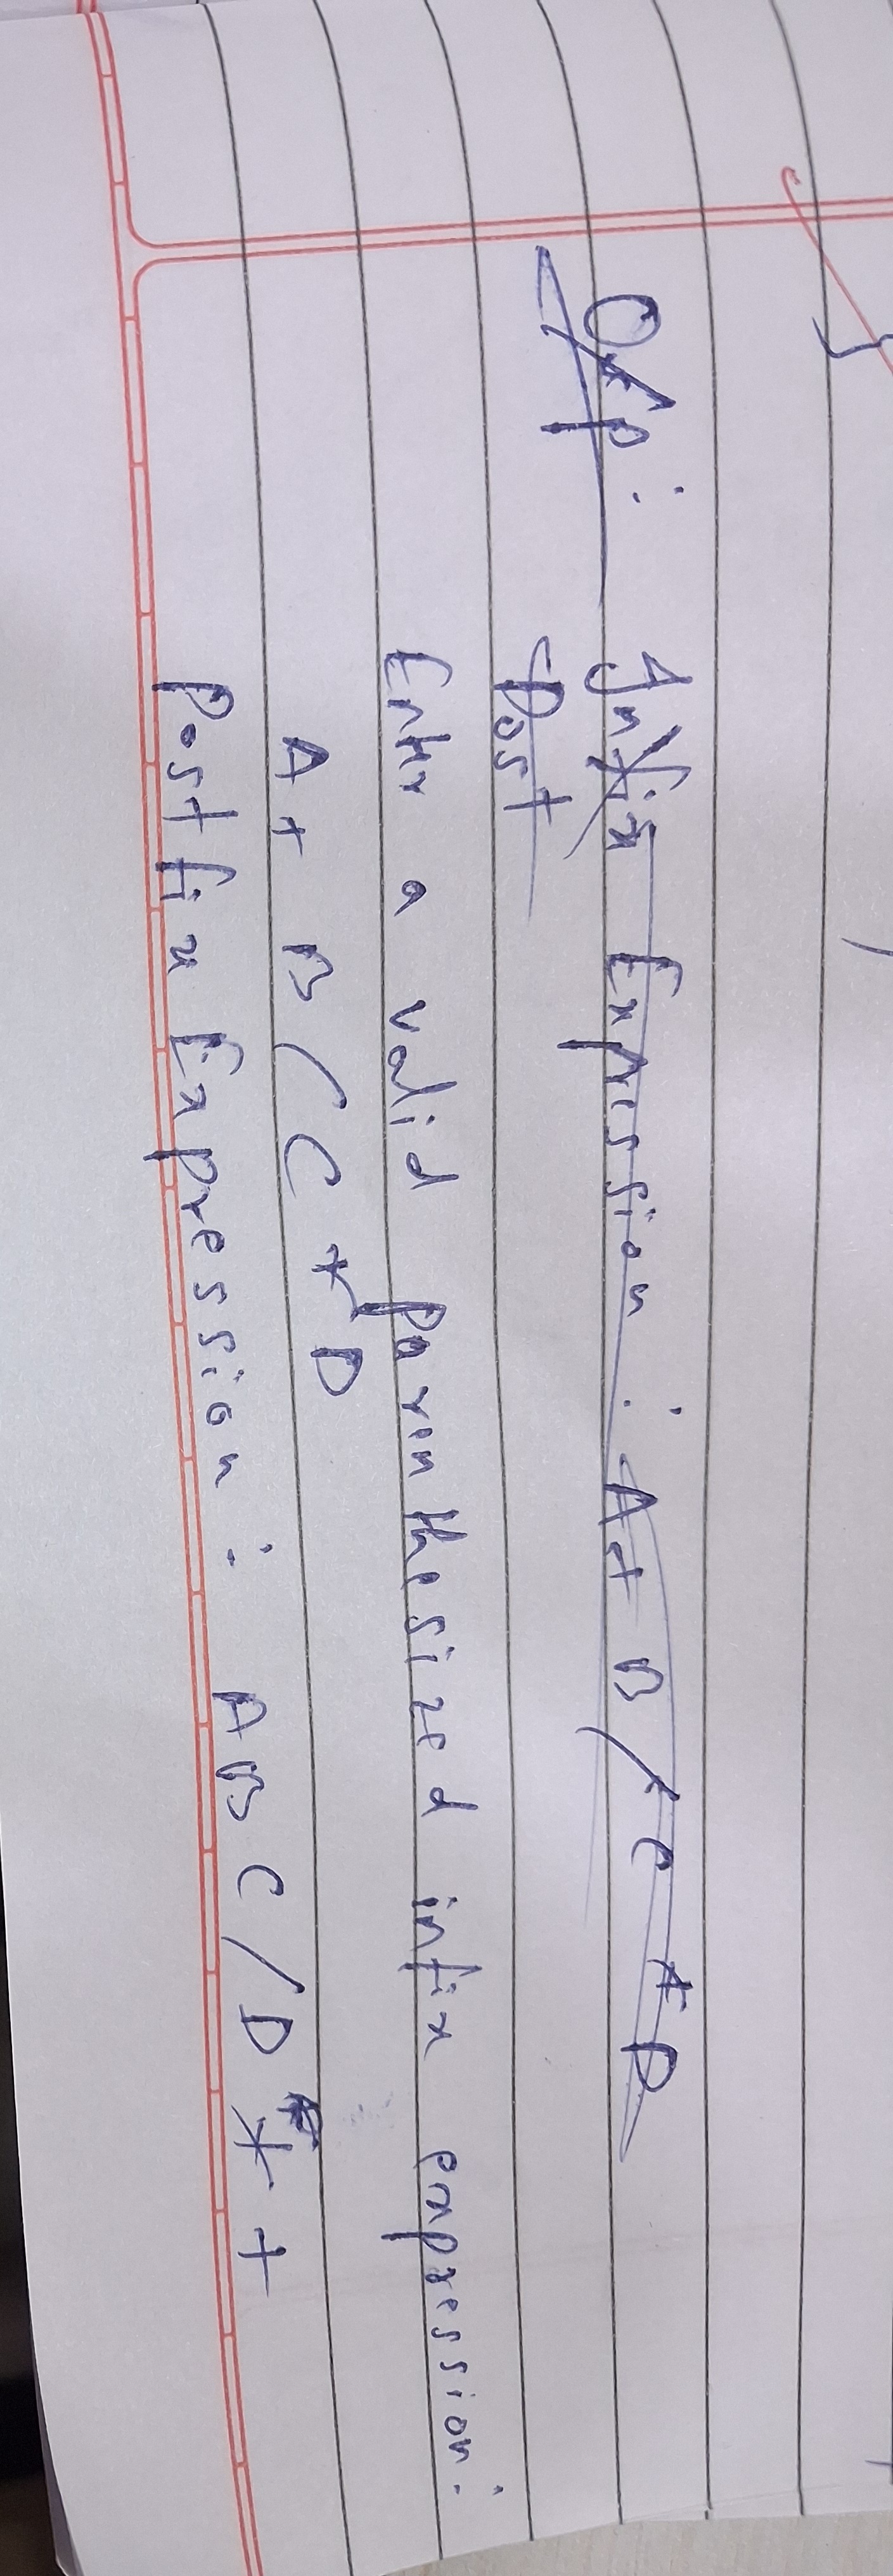 O/p : Infix Expression : A+ B / C * D
Post
Enter a valid Parenthesized infix expression:
A+ B / C * D
Postfix Expression : ABC/D*+